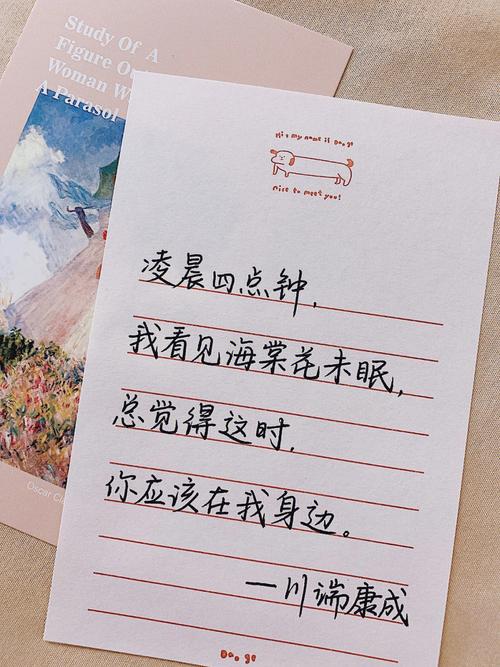 Study Of A
Figure Ou
Woman W
A Parasol
Hi, my name is Dog ge
nice to meet you!
凌晨四点钟，
我看见海棠花未眠，
总觉得这时，
你应该在我身边。
—川端康成
Oscar Cl
Dog ge